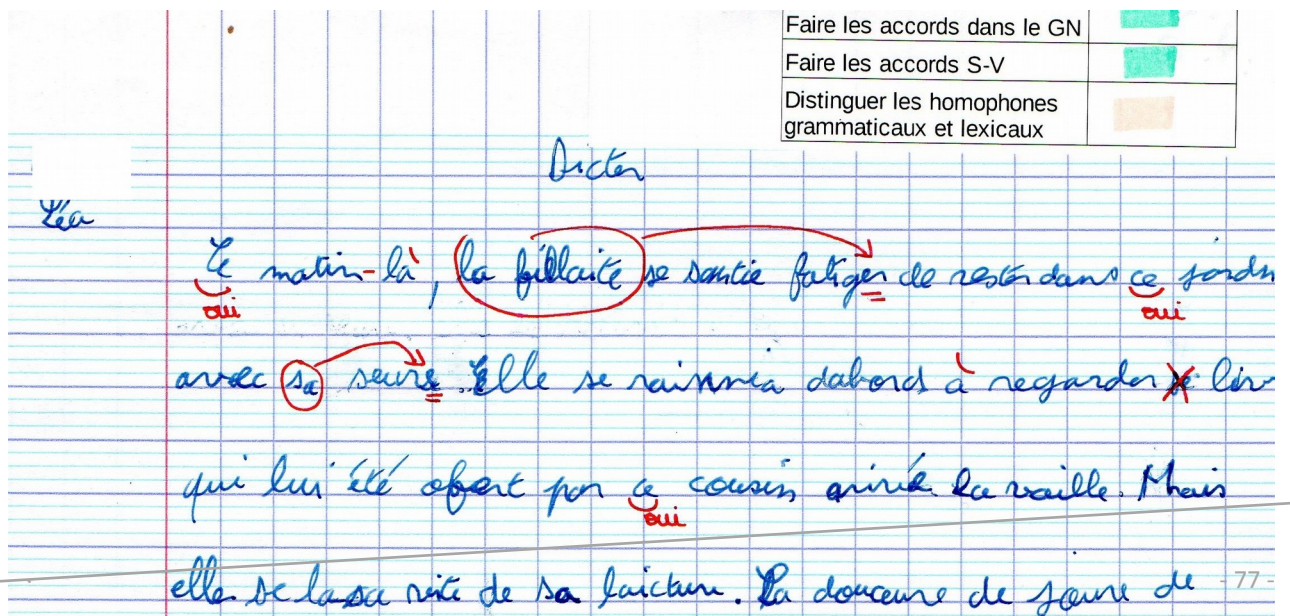 Faire les accords dans le GN
Faire les accords S-V
Distinguer les homophones
grammaticaux et lexicaux
Dicter
Léa
Ce matin-là, la fillaite se sentie fatiger de rester dans ce jardn
oui oui
avec sa seure. Elle se dabord à regarder livr
qui lui été ofert par ce cousin arivé la vaille. Mais
oui
elle se lasa vite de sa laicture. La douceure de joure de
- 77 -